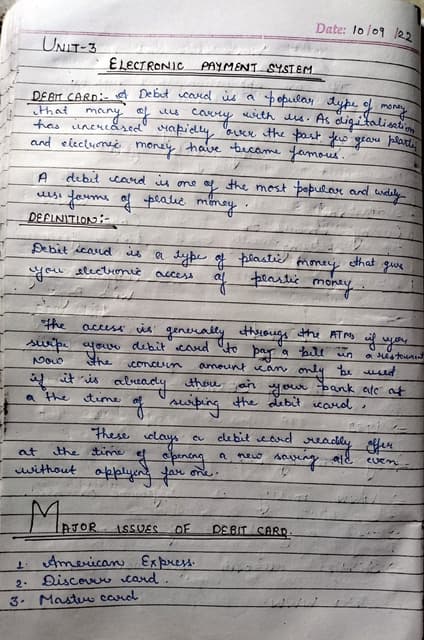 Date: 10/09/22
UNIT-3
ELECTRONIC PAYMENT SYSTEM
DEBIT CARD:- A Debit card is a popular type of money
that many of us carry with us. As digitalisation
has increased rapidly over the past few years plastic
and electronic money have became famous.
A debit card is one of the most popular and widely
use forms of plastic money.
DEFINITION:-
Debit card is a type of plastic money that give
you electronic access of plastic money.
The access is generally through the ATMs if you
swipe your debit card to pay a bill in a restaurant
Now the concern amount can only be used
if it is already there in your bank a/c at
a the time of swiping the debit card.
These days a debit card readily offer
at the time of opening a new saving a/c even
without applying for one.
MAJOR ISSUES OF DEBIT CARD.
1. American Express.
2. Discover card.
3. Master card